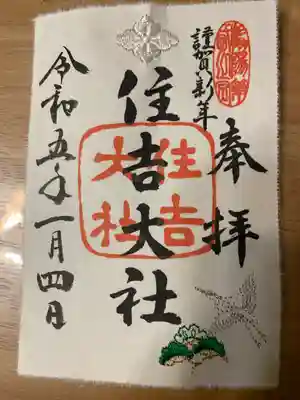 謹賀新年
奉拝
住吉大社
住吉
大社
令和五年一月四日